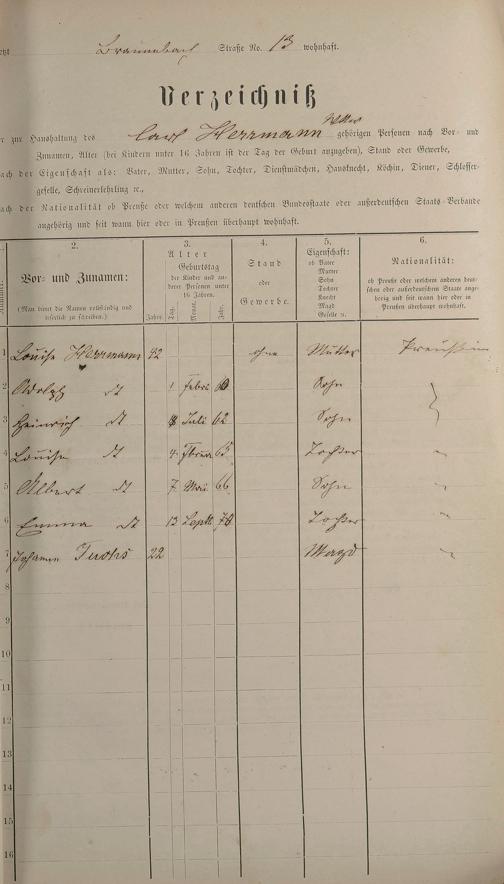 Straße No. 13 wohnhaft.
Verzeichniß
zur Haushaltung des Carl Herrmann gehörigen Personen nach Vor- und
Zunamen, Alter (bei Kindern unter 16 Jahren ist der Tag der Geburt anzugeben), Stand oder Gewerbe,
nach der Eigenschaft als: Vater, Mutter, Sohn, Tochter, Dienstmädchen, Hausknecht, Köchin, Diener, Schlosser-
geselle, Schreinerlehrling ꝛc.,
nach der Nationalität ob Preuße oder welchem anderen deutschen Bundesstaate oder außerdeutschen Staats-Verbande
angehörig und seit wann hier oder in Preußen überhaupt wohnhaft.
2.
Vor- und Zunamen:
(Man bittet die Namen vollständig und leserlich zu schreiben.)
3.
Alter
Geburtstag
der Kinder und anderer Personen unter 16 Jahren.
Jahre. Tag. Monat. Jahr.
4.
Stand
oder
Gewerbe.
5.
Eigenschaft:
ob Vater
Mutter
Sohn
Tochter
Knecht
Magd
Geselle u.
6.
Nationalität:
ob Preuße oder welchem anderen deutschen oder außerdeutschen Staate angehörig und seit wann hier oder in Preußen überhaupt wohnhaft.
1 Louise Herrmann 42 ohne Mutter
2 Adolph dt 1 Febr Sohn
3 Heinrich dt 8 Juli 62 Sohn
4 Louise dt 4 65 Tochter
5 Albert dt 7 Mai 66 Sohn
6 Emma dt 13 Septb Tochter
7 Johanna Fuchs 22 Magd
8
9
10
11
12
13
14
15
16